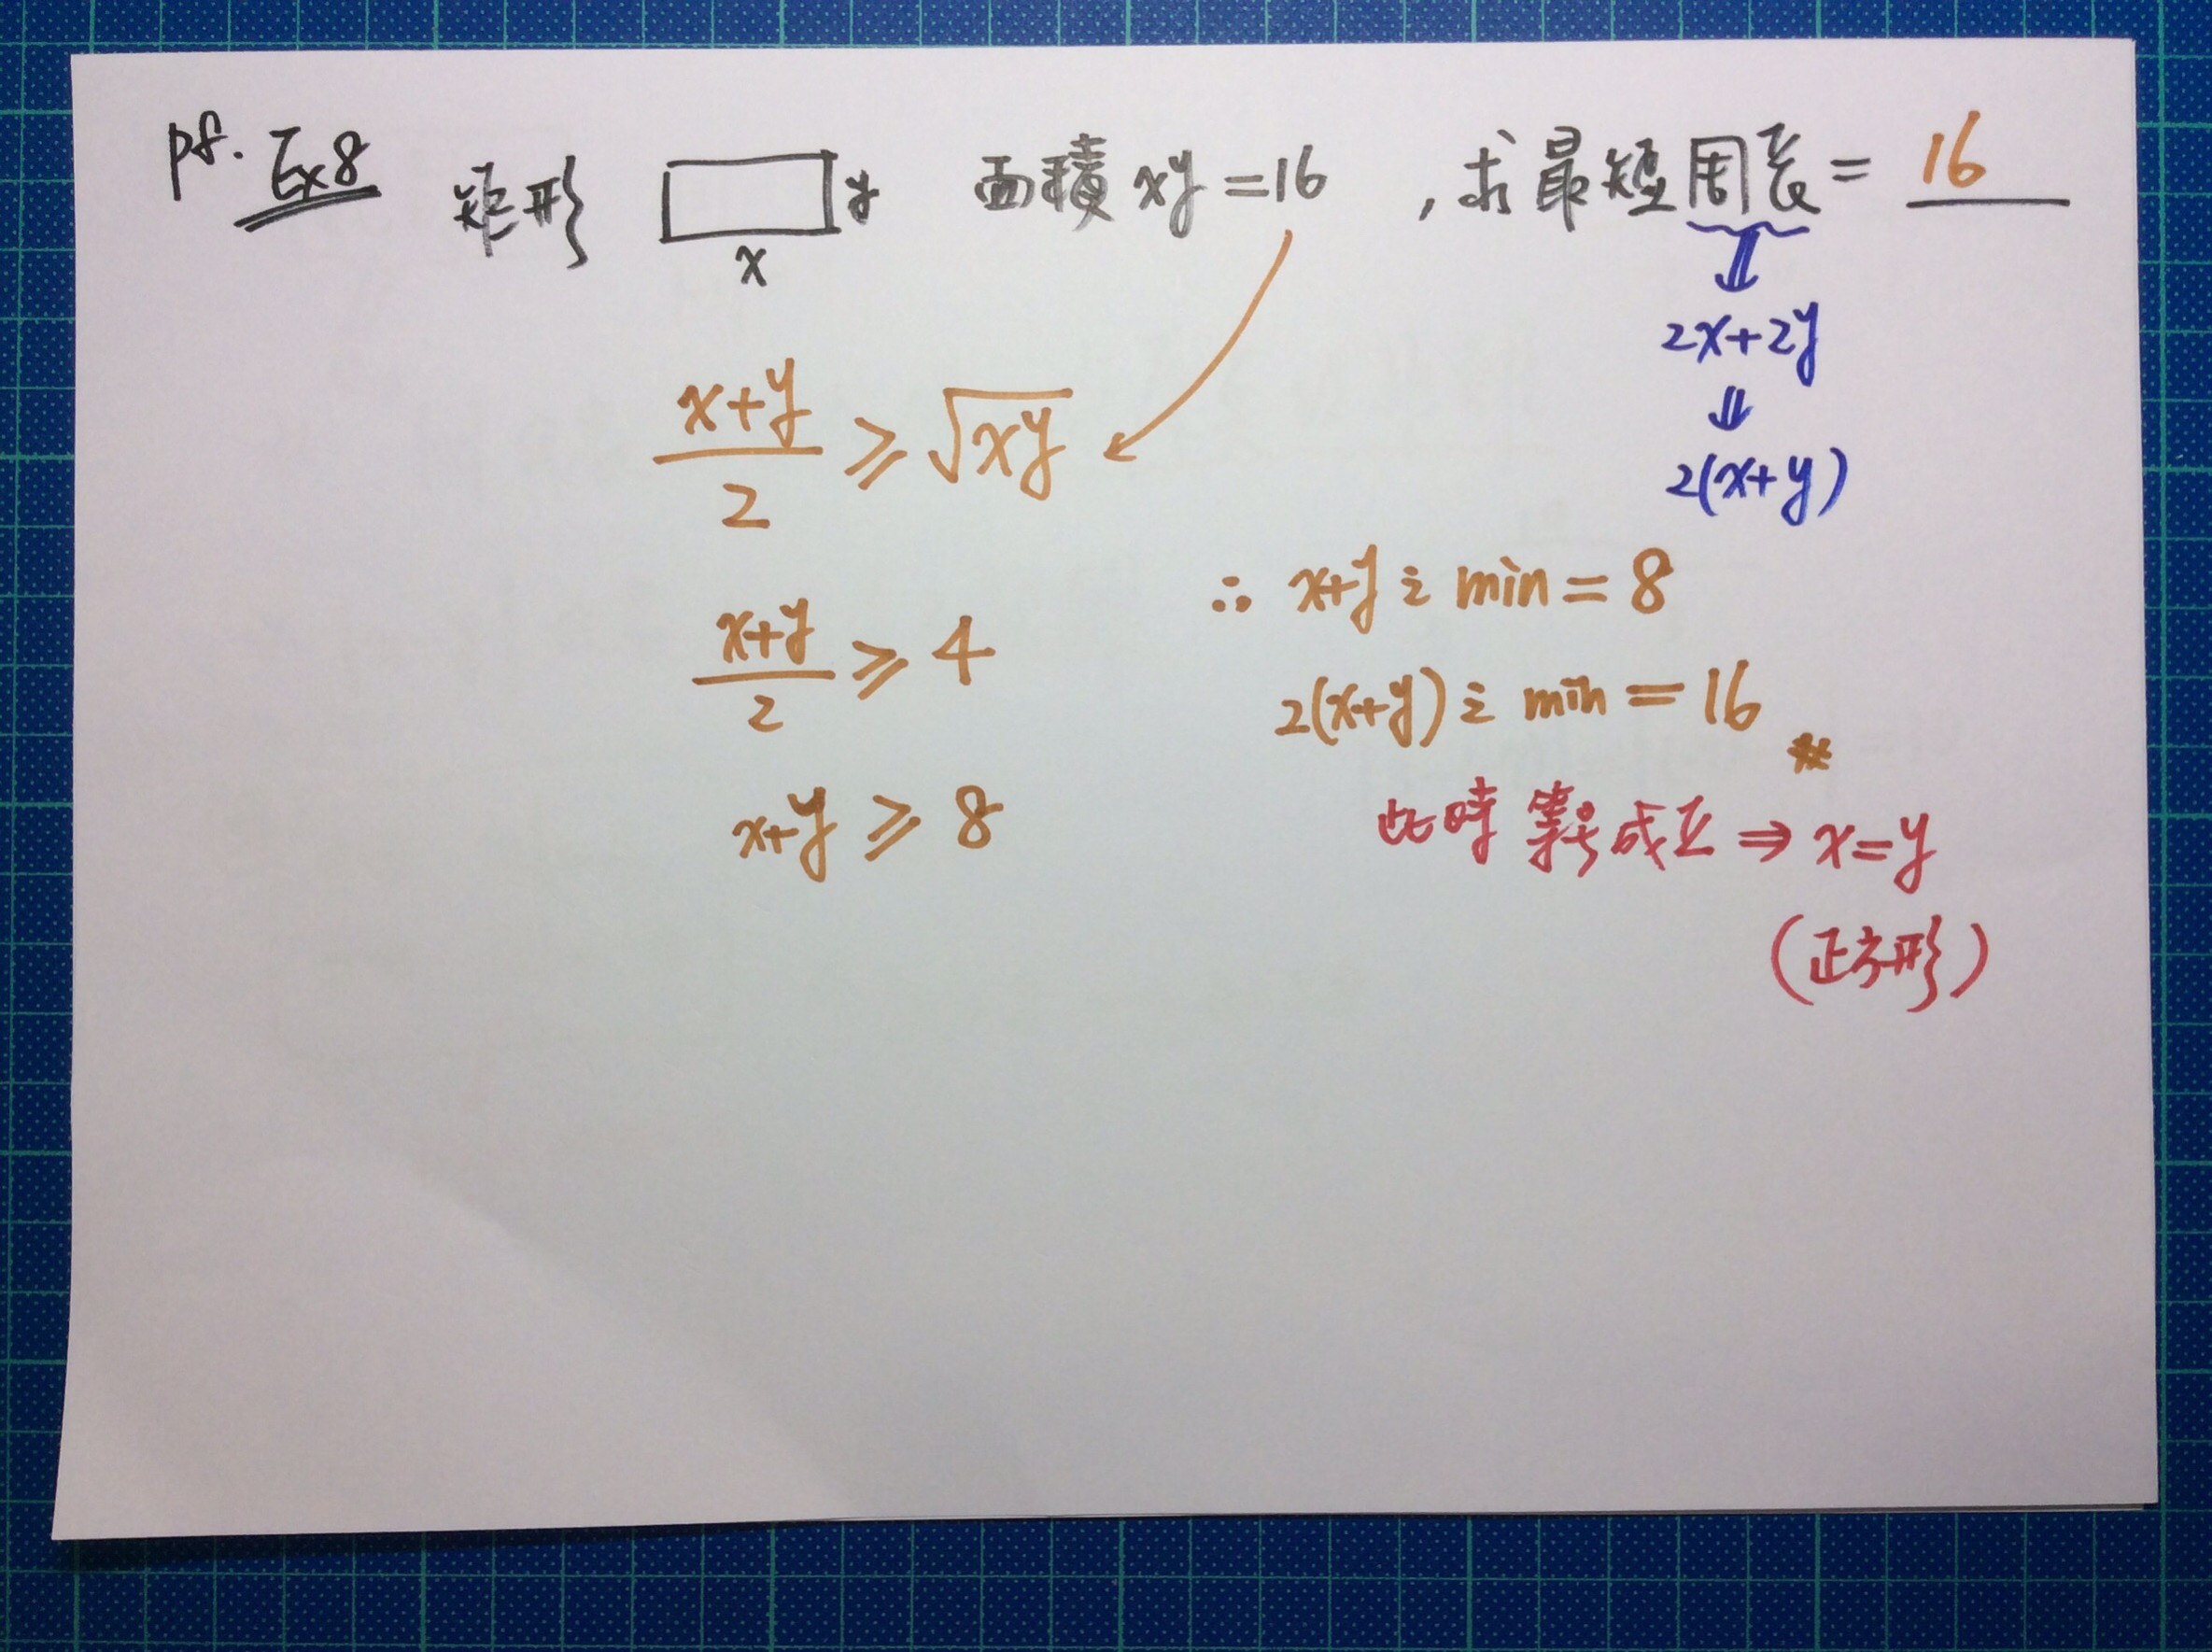 p8. Ex8 矩形 x y 面積 xy = 16 , 求最短周長 = 16
2x+2y
2(x+y)
(x+y)/2 ≥ √xy
(x+y)/2 ≥ 4
x+y ≥ 8
∴ x+y 之 min = 8
2(x+y) 之 min = 16 #
此時 等號成立 ⇒ x=y
(正方形)